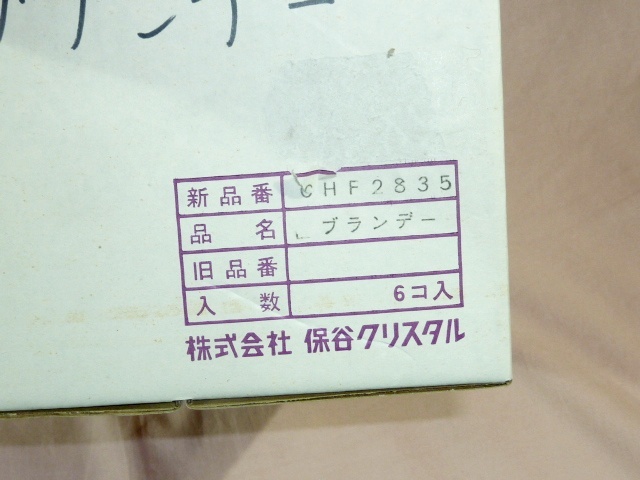 ブランデー
新品番 CHF2835
品名 ブランデー
旧品番
入数 6コ入
株式会社 保谷クリスタル